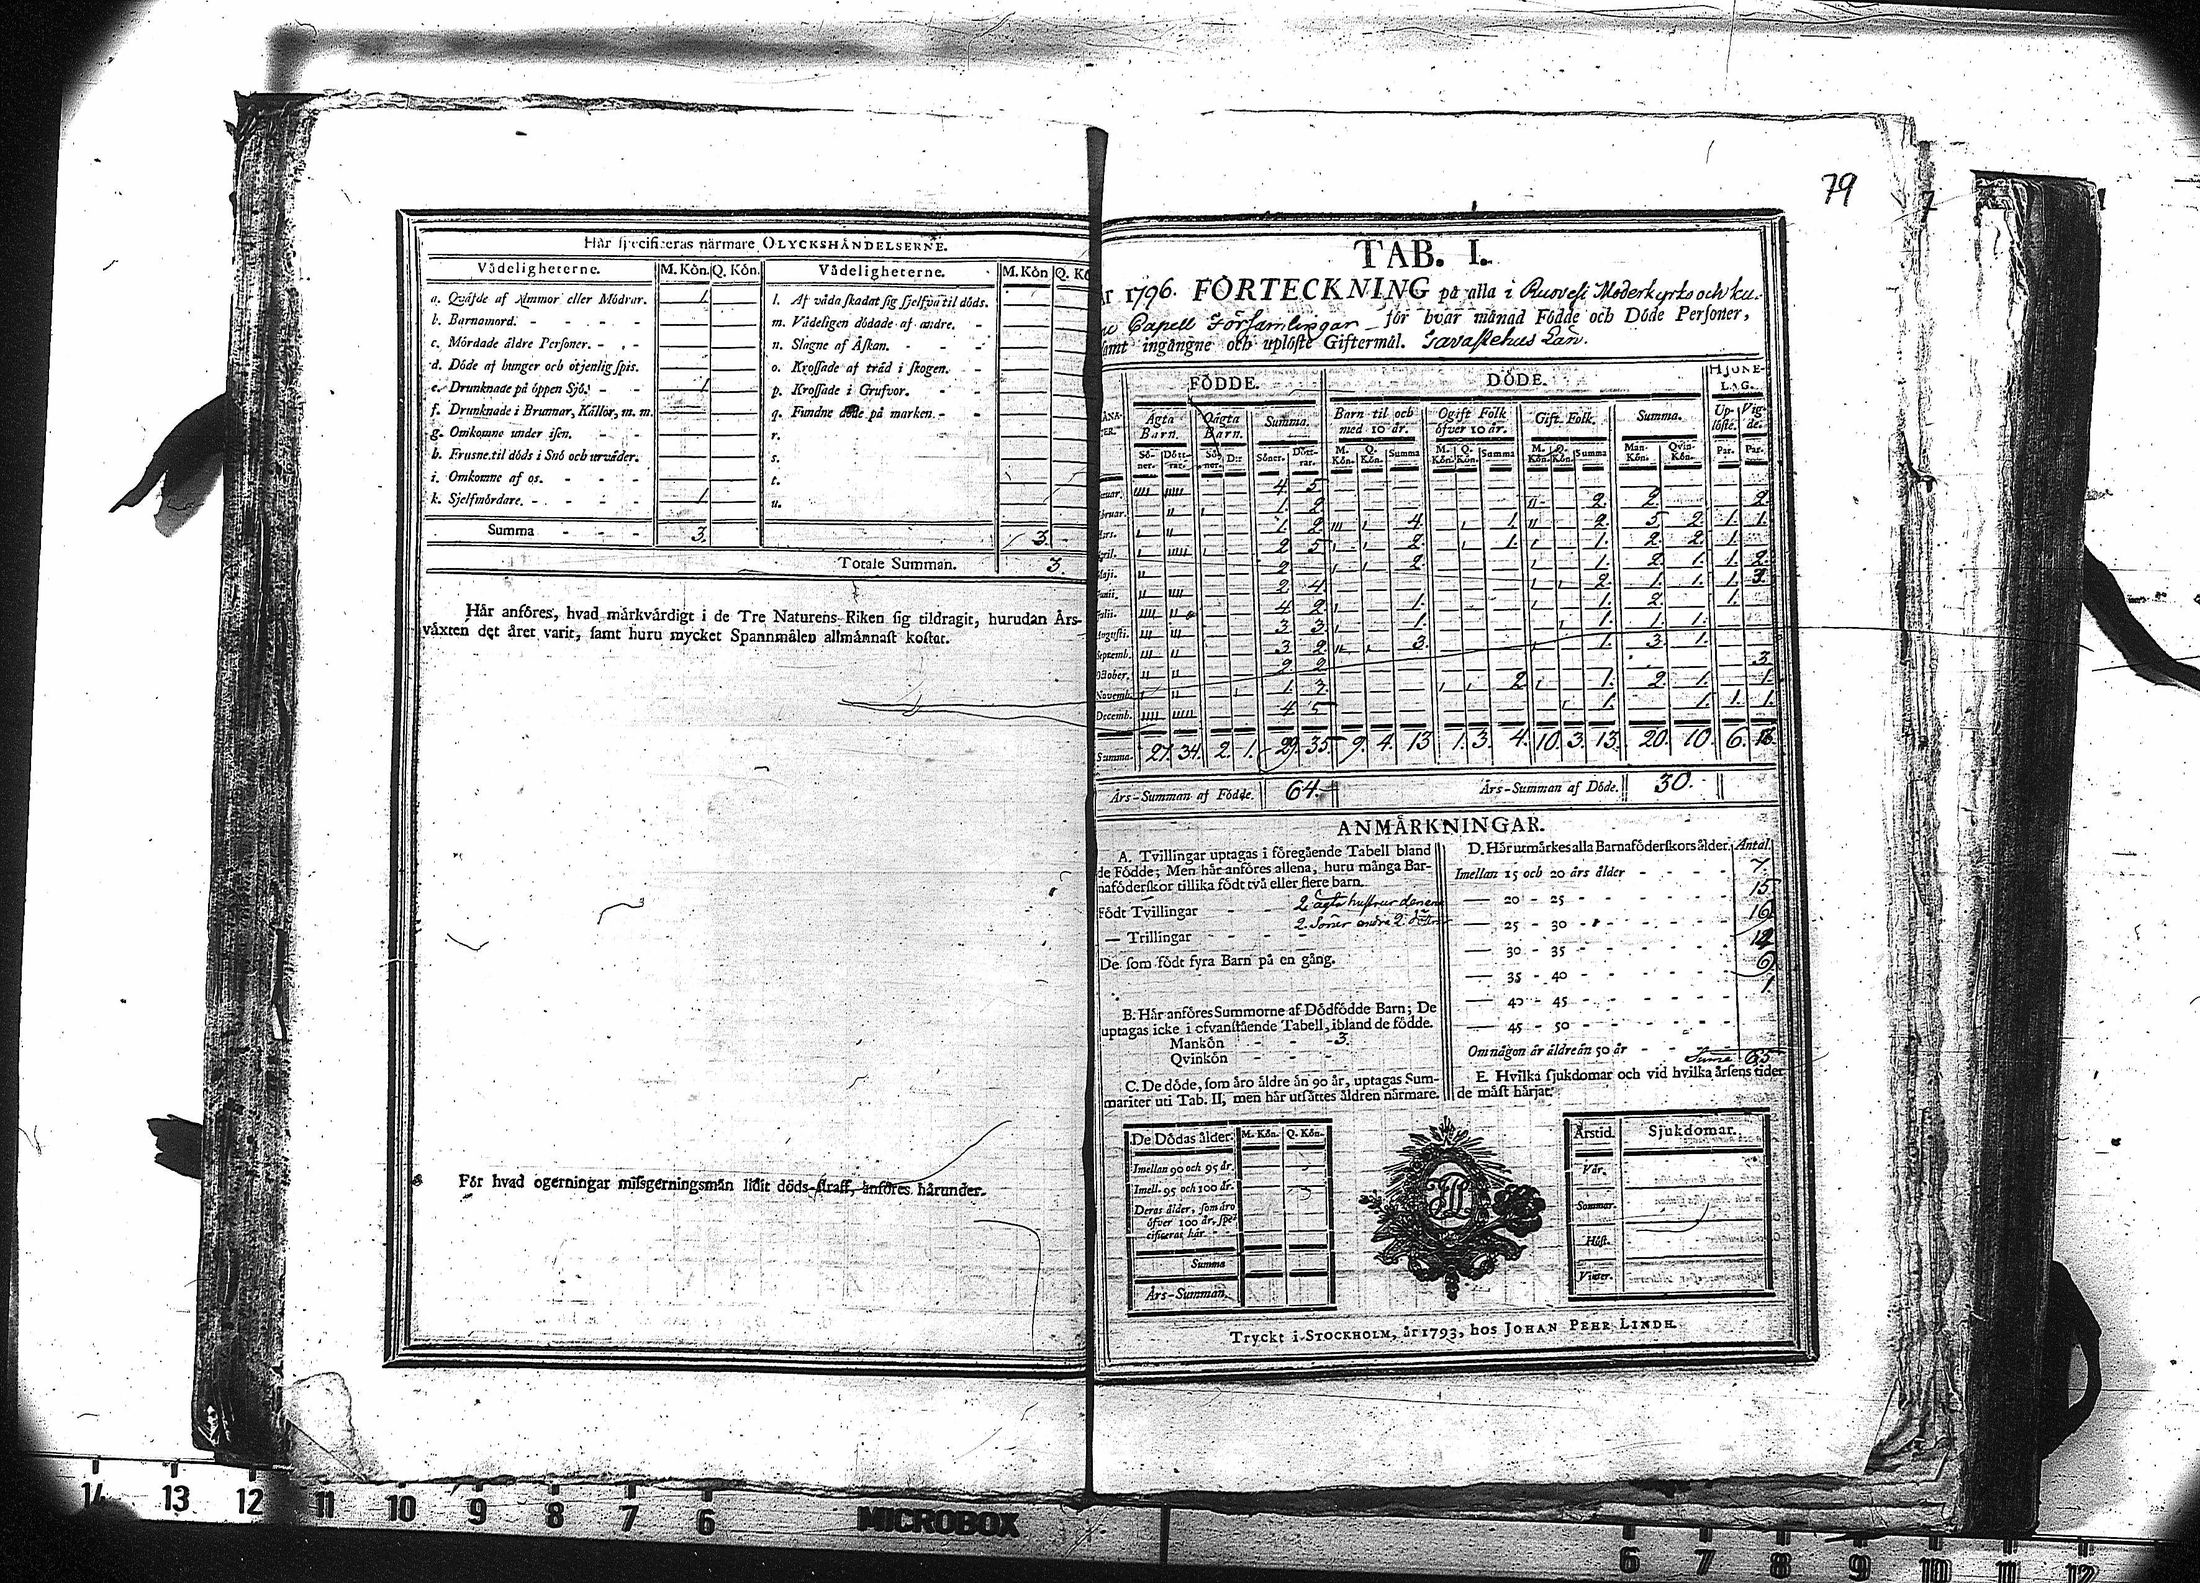 79
Hår specificeras närmare OLYCKSHÅNDELSERNE.
Vådeligheterne. M. Kön. Q. Kön. Vådeligheterne. M. Kön Q. Kö
a. Qväfde af Ammor eller Mödrar. 1. l. Af våda skadat sig sjelfva til döds.
b. Barnamord. m. Vådeligen dödade af andre.
c. Mördade äldre Personer. n. Slagne af Åskan.
d. Döde af hunger och otjenlig spis. o. Krossade af träd i skogen.
e. Drunknade på öppen Sjö. 1 p. Krossade i Grufvor.
f. Drunknade i Brunnar, Källor, m. m. q. Fundne döde på marken.
g. Omkomne under isen. r.
h. Frusne til döds i Snö och urväder. s.
i. Omkomne af os. t.
k. Sjelfmördare. 1 u.
Summa 3. 3.
Totale Summan. 3
Här anföres, hvad märkvärdigt i de Tre Naturens Riken sig tildragit, hurudan Års-
växten det året varit, samt huru mycket Spannmålen allmännast kostat.
För hvad ogerningar missgerningsmän lidit döds-straff, anföres härunder.
TAB. I.
År 1796. FÖRTECKNING på alla i Ruovesi Moderkyrko och
Capell Församlingar för hvar månad Födde och Döde Personer,
samt ingångne och uplöste Giftermål. Tavastehus Län.
FÖDDE. DÖDE. HJONE-
LAG.
Ägta Barn. Oägta Barn. Summa. Barn til och med 10 år. Ogift Folk öfver 10 år. Gift Folk. Summa. Up-löste. Vig-de.
Sö-ner. Dött-rar. Sö-ner. D:r Söner. Dött-rar. M. Kön. Q. Kön. Summa M. Kön. Q. Kön. Summa M. Kön. Q. Kön. Summa Man-Kön. Qvin-Kön. Par. Par.
nuar. 4 5
bruar. 1. 2 2. 2. 2
ars. 1. 2 4. 1. 2 5 2. 1. 1.
pril. 2 5 2. 1. 1. 2. 2. 1.
Maji. 2 2 1. 2 1. 1. 2.
unii. 2 4 2. 1. 1. 1. 3.
ulii. 4 2 1. 1. 2. 1.
Augusti. 3 3 1. 1. 1. 1.
Septemb. 3 2 3. 1. 3. 1.
October. 2 2 3
Novemb. 1. 3 2 1. 2. 1. 1.
Decemb. 4 5 1. 1. 1. 1.
Summa. 27. 34. 2. 1. 29. 35. 9. 4. 13 1. 3. 4. 10. 3. 13. 20. 10. 6. 16.
Års-Summan af Födde. 64. Års-Summan af Döde. 30.
ANMÄRKNINGAR.
A. Tvillingar uptagas i föregående Tabell bland
de Födde; Men här anföres allena, huru många Bar-
naföderskor tillika födt två eller flere barn.
Födt Tvillingar 2 ägta hustrur denena
2. Söner andra 2. döttrar
— Trillingar
De som födt fyra Barn på en gång.
B. Här anföres Summorne af Dödfödde Barn; De
uptagas icke i ofvanstående Tabell, ibland de födde.
Mankön 3.
Qvinkön
C. De döde, som äro äldre än 90 år, uptagas Sum-
mariter uti Tab. II, men här utsättes åldren närmare.
De Dödas ålder. M. Kön. Q. Kön.
Imellan 90 och 95 år.
Imell. 95 och 100 år.
Deras ålder, som äro
öfver 100 år, spe-
cificeras här
Summa
Års-Summan,
D. Här utmärkes alla Barnaföderskors ålder. Antal.
Imellan 15 och 20 års ålder 7.
— 20 - 25 15
— 25 - 30 16
— 30 - 35
— 35 - 40 6
— 40 - 45 1.
— 45 - 50
Om någon är äldre än 50 år Summa 65
E. Hvilka sjukdomar och vid hvilka årsens tider
de mäst härjat.
Årstid. Sjukdomar.
Vår.
Sommar.
Höst.
Vinter.
Tryckt i STOCKHOLM, år 1793, hos JOHAN PEHR LINDH.
14 13 12 11 10 9 8 7 6 MICROBOX 6 7 8 9 10 11 12